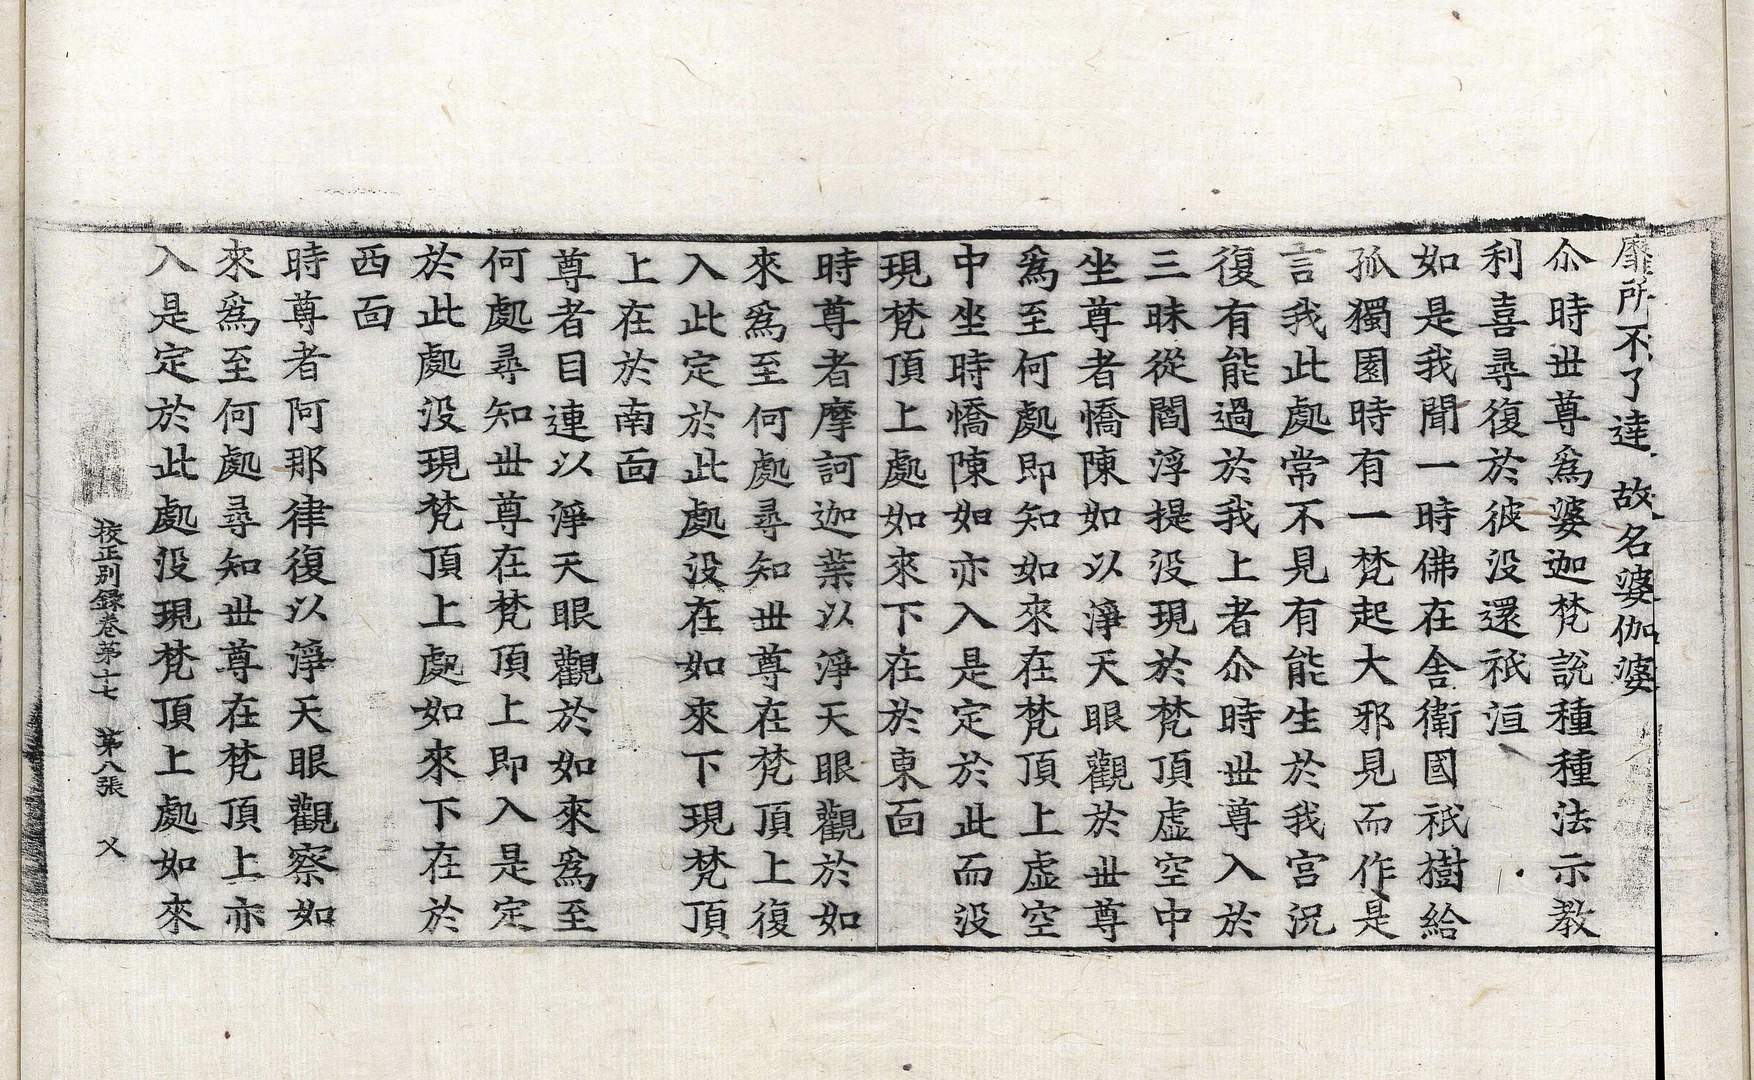 靡所不了達故名婆伽婆
尒時世尊爲婆迦梵說種種法示教
利喜尋復於彼没還祇洹
如是我聞一時佛在舎衛國祇樹給
孤獨園時有一梵起大邪見而作是
言我此處常不見有能生於我宮況
復有能過於我上者尒時世尊入於
三昧從閻浮提没現於梵頂虛空中
坐尊者憍陳如以淨天眼觀於世尊
爲至何處即知如來在梵頂上虛空
中坐時憍陳如亦入是定於此而没
現梵頂上處如來下在於東面
時尊者摩訶迦葉以淨天眼觀於如
來爲至何處尋知世尊在梵頂上復
入此定於此處没在如來下現梵頂
上在於南面
尊者目連以淨天眼觀於如來爲至
何處尋知世尊在梵頂上即入是定
於此處没現梵頂上處如來下在於
西面
時尊者阿那律復以淨天眼觀察如
來爲至何處尋知世尊在梵頂上亦
入是定於此處没現梵頂上處如來
校正別録卷第十七 第八張